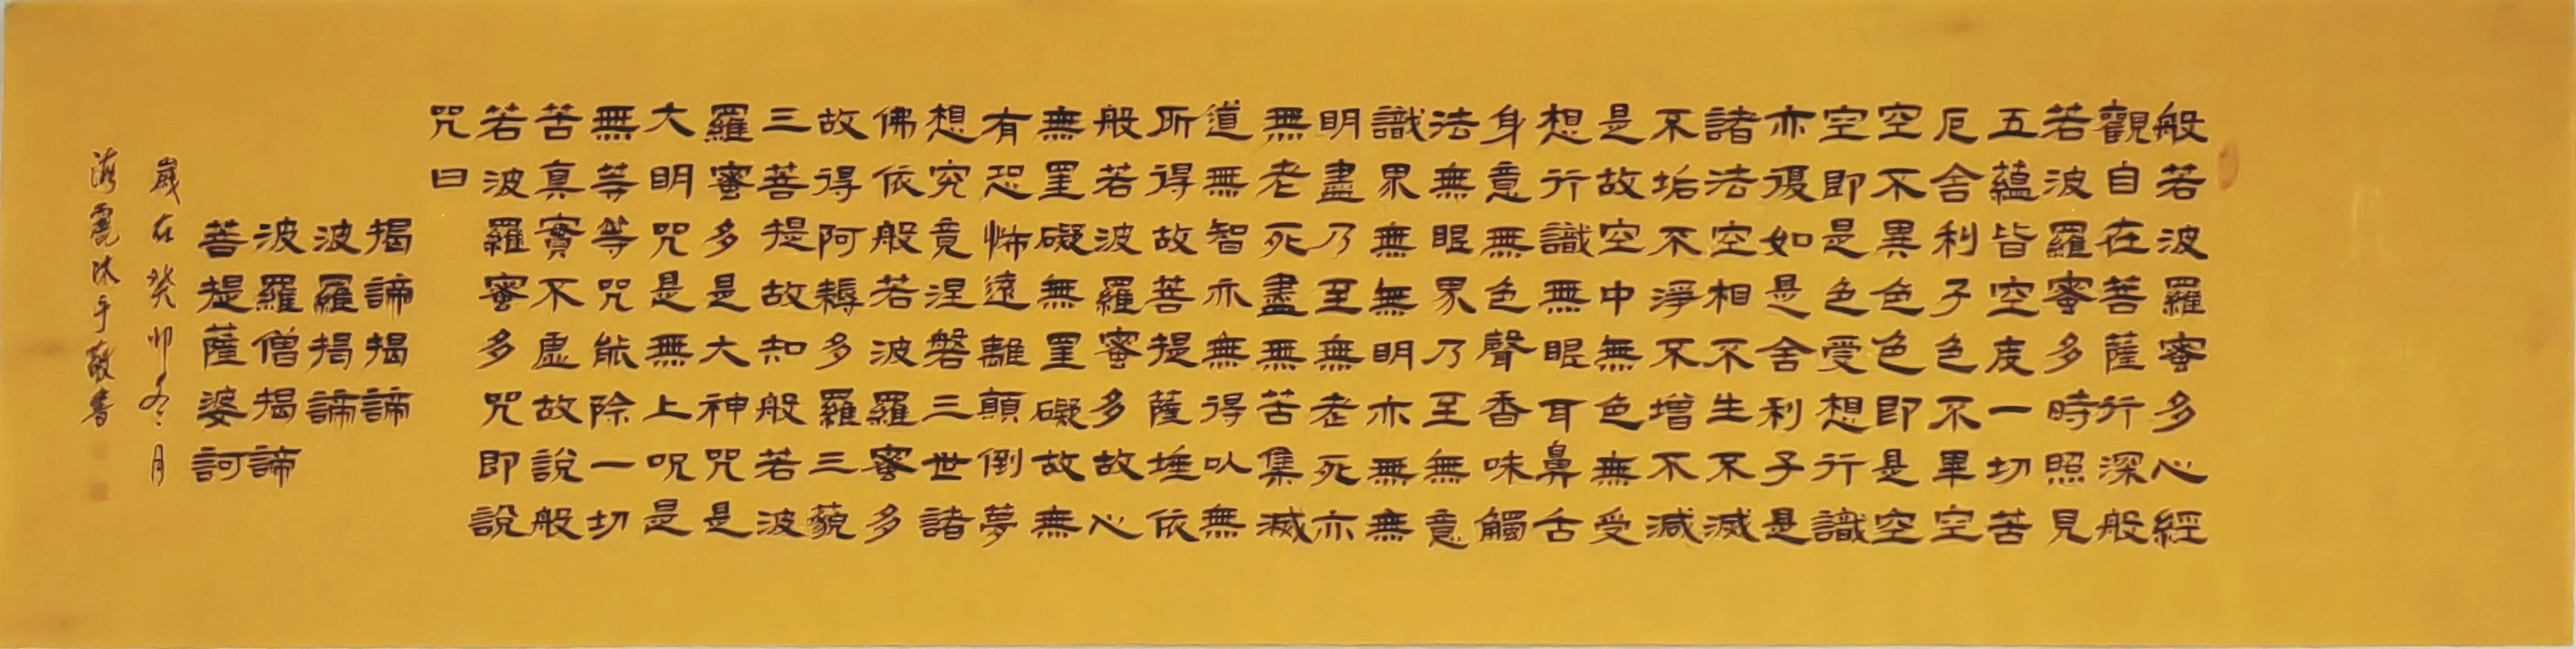 般若波羅蜜多心經
觀自在菩薩行深般
若波羅蜜多時照見
五蘊皆空度一切苦
厄舍利子色不畢空
空不異色色即是空
空即是色受想行識
亦復如是舍利子是
諸法空相不生不滅
不垢不淨不增不減
是故空中無色無受
想行識無眼耳鼻舌
身意無色聲香味觸
法無眼界乃至無意
識界無無明亦無無
明盡乃至無老死亦
無老死盡無苦集滅
道無智亦無得以無
所得故菩提薩埵依
般若波羅蜜多故心
無罣礙無罣礙故無
有恐怖遠離顛倒夢
想究竟涅磐三世諸
佛依般若波羅蜜多
故得阿耨多羅三藐
三菩提故知般若波
羅蜜多是大神咒是
大明咒是無上呪是
無等等咒能除一切
苦真實不虛故說般
若波羅蜜多咒即說
咒曰
揭諦揭諦
波羅揭諦
波羅僧揭諦
菩提薩婆訶
歲在癸卯冬月
沐手敬書